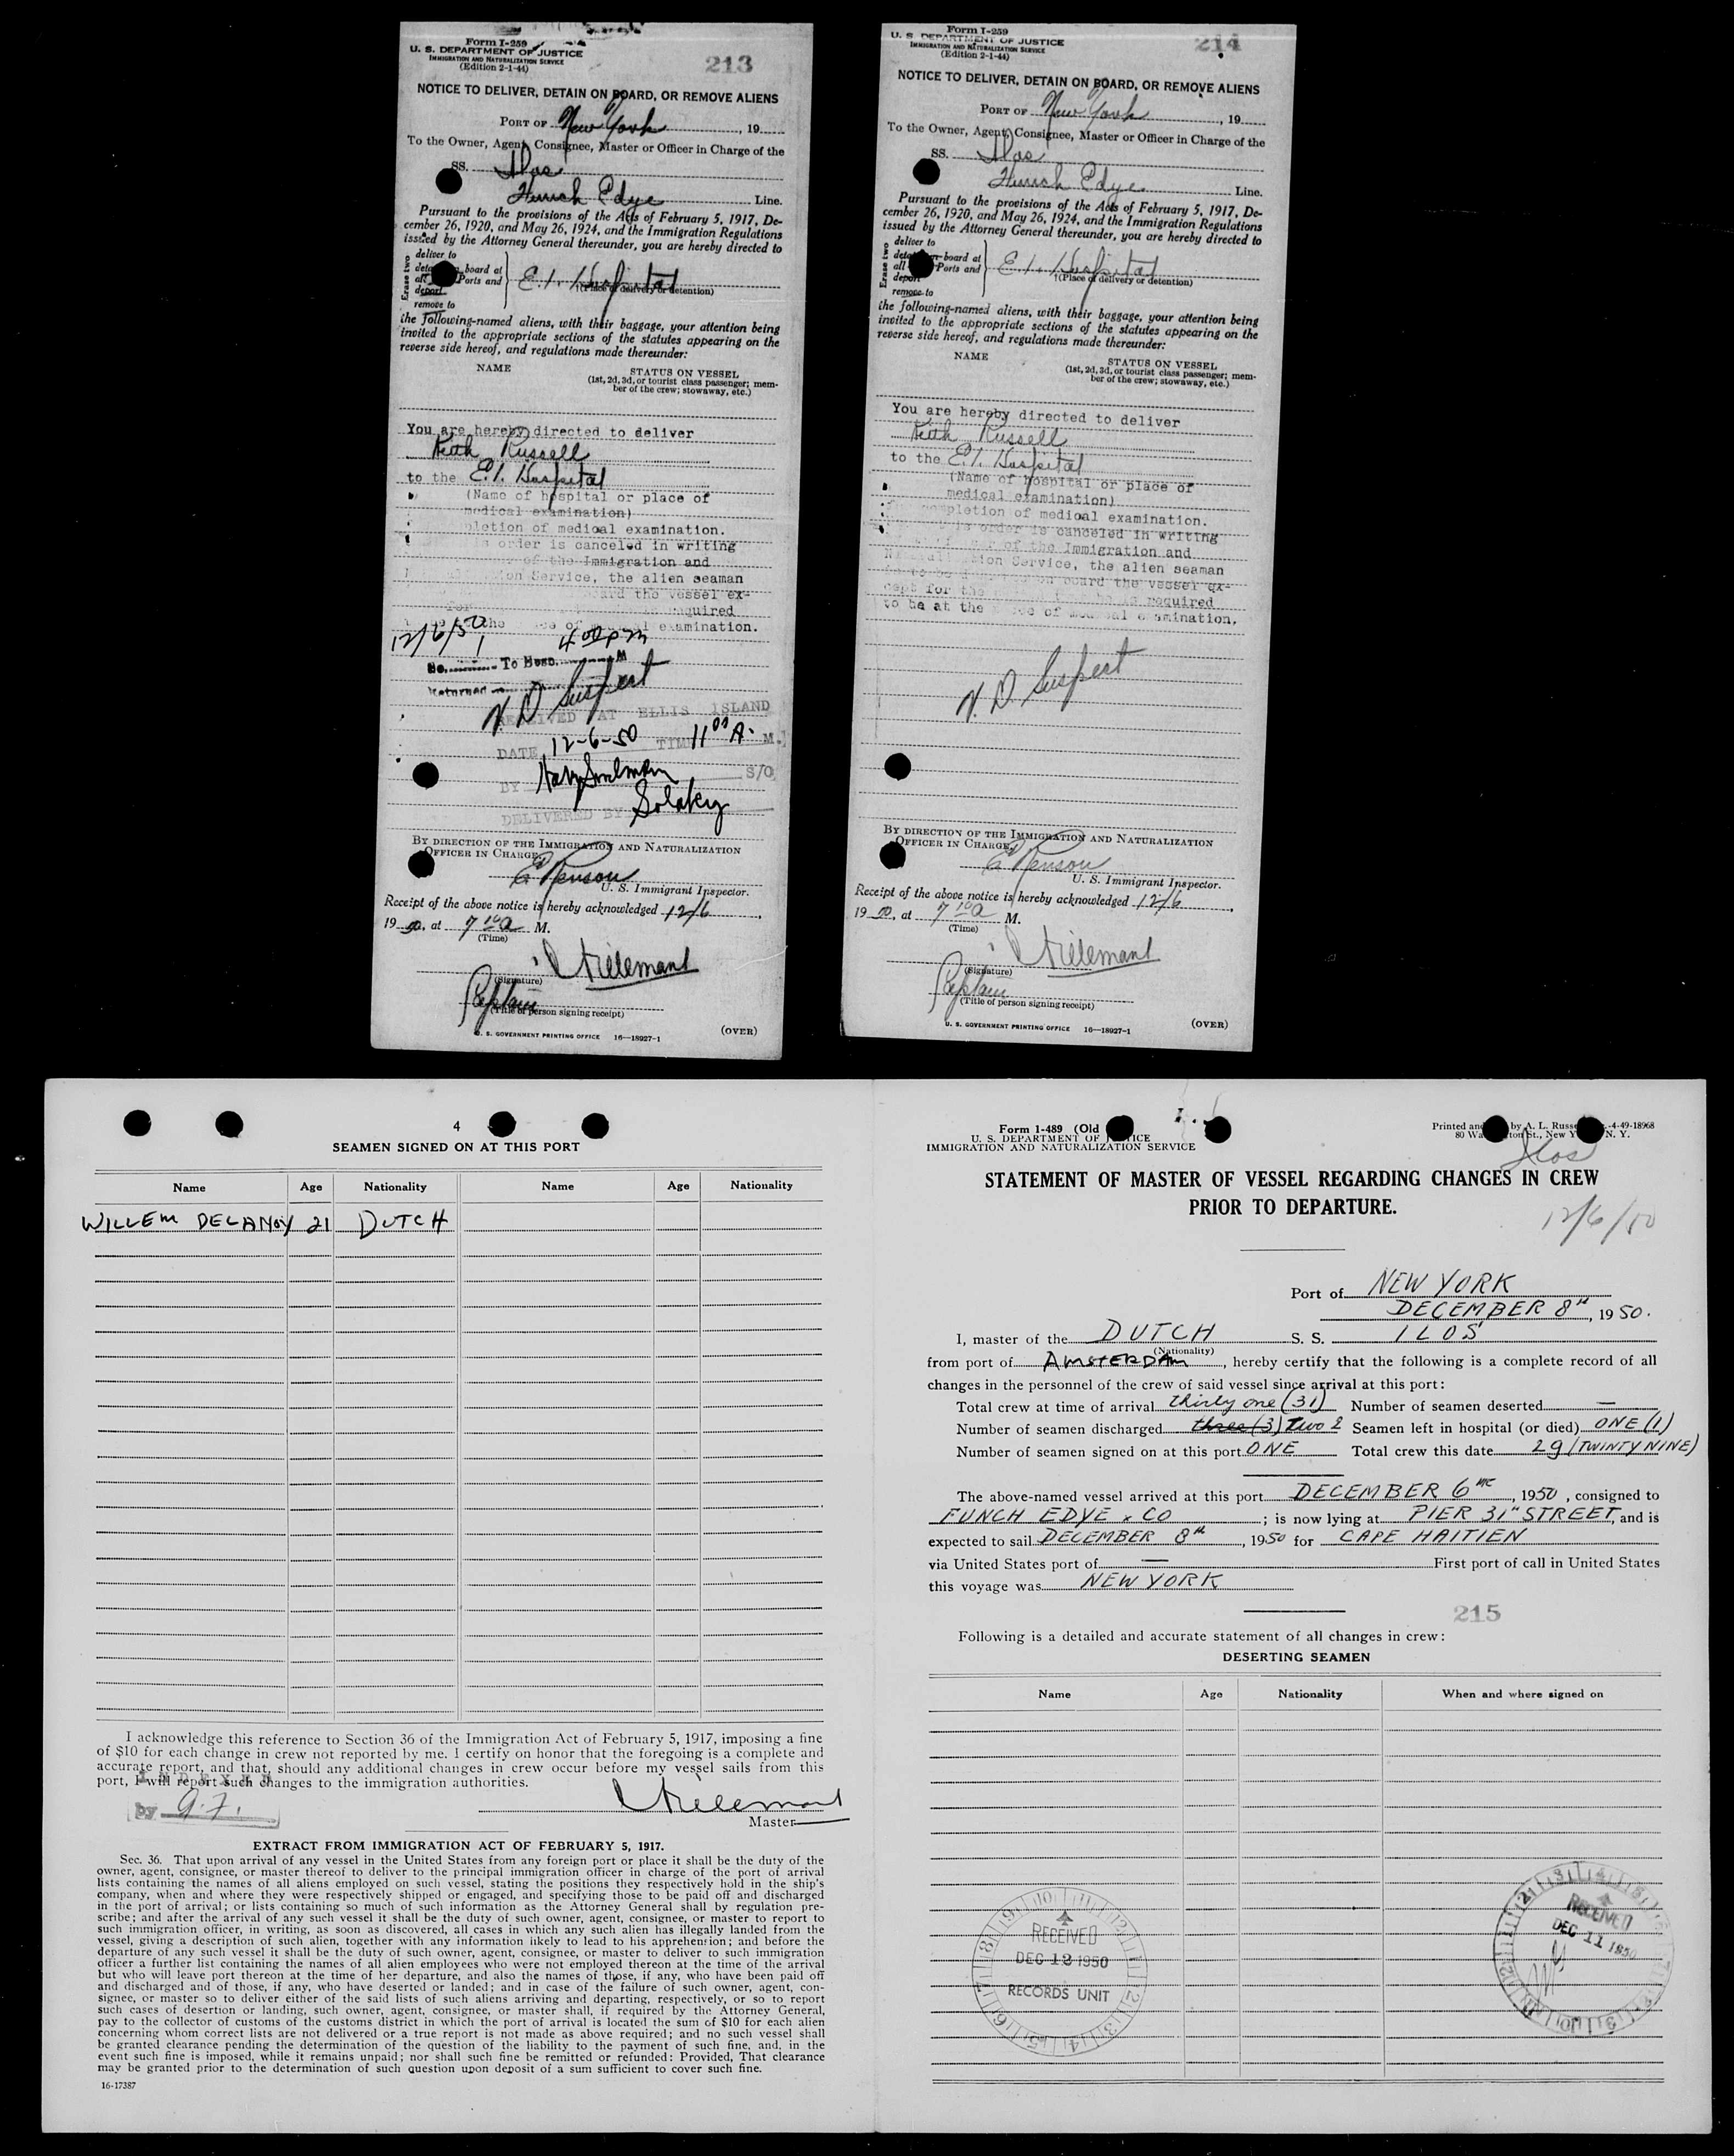 Form I-259
U. S. DEPARTMENT OF JUSTICE
IMMIGRATION AND NATURALIZATION SERVICE
(Edition 2-1-44)
213
NOTICE TO DELIVER, DETAIN ON BOARD, OR REMOVE ALIENS
PORT OF New York, 19
To the Owner, Agent, Consignee, Master or Officer in Charge of the
SS. Ilos
Funch Edye Line.
Pursuant to the provisions of the Acts of February 5, 1917, De-
cember 26, 1920, and May 26, 1924, and the Immigration Regulations
issued by the Attorney General thereunder, you are hereby directed to
Erase two
deliver to
board at
all Ports and
deport
remove to
E. I. Hospital
(Place of delivery or detention)
the following-named aliens, with their baggage, your attention being
invited to the appropriate sections of the statutes appearing on the
reverse side hereof, and regulations made thereunder:
NAME
STATUS ON VESSEL
(1st, 2d, 3d, or tourist class passenger; mem-
ber of the crew; stowaway, etc.)
You are hereby directed to deliver
Keith Russell
to the E. I. Hospital
(Name of hospital or place of
medical examination)
pletion of medical examination.
is order is canceled in writing
of the Immigration and
on Service, the alien seaman
ard the vessel ex-
for required
the ce of medical examination.
12/6/50 4 00 pm
To Hosp. M
Returned
V. D Suspect
RECEIVED AT ELLIS ISLAND
DATE 12-6-50 TIME 11 00 A. M.
BY S/O
DELIVERED BY
BY DIRECTION OF THE IMMIGRATION AND NATURALIZATION
OFFICER IN CHARGE,
U. S. Immigrant Inspector.
Receipt of the above notice is hereby acknowledged 12/6,
19 50, at 7 10 a M.
(Time)
(Signature)
Captain
(Title of person signing receipt)
U. S. GOVERNMENT PRINTING OFFICE 16—18927-1
(OVER)
Form I-259
U. S. DEPARTMENT OF JUSTICE
IMMIGRATION AND NATURALIZATION SERVICE
(Edition 2-1-44)
214
NOTICE TO DELIVER, DETAIN ON BOARD, OR REMOVE ALIENS
PORT OF New York, 19
To the Owner, Agent, Consignee, Master or Officer in Charge of the
SS. Ilos
Funch Edye Line.
Pursuant to the provisions of the Acts of February 5, 1917, De-
cember 26, 1920, and May 26, 1924, and the Immigration Regulations
issued by the Attorney General thereunder, you are hereby directed to
Erase two
deliver to
board at
all Ports and
deport
remove to
E. I. Hospital
(Place of delivery or detention)
the following-named aliens, with their baggage, your attention being
invited to the appropriate sections of the statutes appearing on the
reverse side hereof, and regulations made thereunder:
NAME
STATUS ON VESSEL
(1st, 2d, 3d, or tourist class passenger; mem-
ber of the crew; stowaway, etc.)
You are hereby directed to deliver
Keith Russell
to the E. I. Hospital
(Name of hospital or place of
medical examination)
pletion of medical examination.
is order is canceled in writing
of the Immigration and
tion Service, the alien seaman
to be on board the vessel ex-
cept for the he is required
to be at the of medical examination.
V. D. Suspect
BY DIRECTION OF THE IMMIGRATION AND NATURALIZATION
OFFICER IN CHARGE,
U. S. Immigrant Inspector.
Receipt of the above notice is hereby acknowledged 12/6,
19 50, at 7 10 a M.
(Time)
(Signature)
Captain
(Title of person signing receipt)
U. S. GOVERNMENT PRINTING OFFICE 16—18927-1
(OVER)
4
SEAMEN SIGNED ON AT THIS PORT
Name Age Nationality Name Age Nationality
WILLEM DELANOY 21 DUTCH
I acknowledge this reference to Section 36 of the Immigration Act of February 5, 1917, imposing a fine
of $10 for each change in crew not reported by me. I certify on honor that the foregoing is a complete and
accurate report, and that, should any additional changes in crew occur before my vessel sails from this
port, I will report such changes to the immigration authorities.
INDEXED
by
Master
EXTRACT FROM IMMIGRATION ACT OF FEBRUARY 5, 1917.
Sec. 36. That upon arrival of any vessel in the United States from any foreign port or place it shall be the duty of the
owner, agent, consignee, or master thereof to deliver to the principal immigration officer in charge of the port of arrival
lists containing the names of all aliens employed on such vessel, stating the positions they respectively hold in the ship's
company, when and where they were respectively shipped or engaged, and specifying those to be paid off and discharged
in the port of arrival; or lists containing so much of such information as the Attorney General shall by regulation pre-
scribe; and after the arrival of any such vessel it shall be the duty of such owner, agent, consignee, or master to report to
such immigration officer, in writing, as soon as discovered, all cases in which any such alien has illegally landed from the
vessel, giving a description of such alien, together with any information likely to lead to his apprehension; and before the
departure of any such vessel it shall be the duty of such owner, agent, consignee, or master to deliver to such immigration
officer a further list containing the names of all alien employees who were not employed thereon at the time of the arrival
but who will leave port thereon at the time of her departure, and also the names of those, if any, who have been paid off
and discharged and of those, if any, who have deserted or landed; and in case of the failure of such owner, agent, con-
signee, or master so to deliver either of the said lists of such aliens arriving and departing, respectively, or so to report
such cases of desertion or landing, such owner, agent, consignee, or master shall, if required by the Attorney General,
pay to the collector of customs of the customs district in which the port of arrival is located the sum of $10 for each alien
concerning whom correct lists are not delivered or a true report is not made as above required; and no such vessel shall
be granted clearance pending the determination of the question of the liability to the payment of such fine, and, in the
event such fine is imposed, while it remains unpaid; nor shall such fine be remitted or refunded: Provided, That clearance
may be granted prior to the determination of such question upon deposit of a sum sufficient to cover such fine.
16-17387
Form 1-489 (Old
U. S. DEPARTMENT OF JUSTICE
IMMIGRATION AND NATURALIZATION SERVICE
Printed and by A. L. Russe -4-49-18968
80 Wa ton St., New Y N. Y.
Ilos
STATEMENT OF MASTER OF VESSEL REGARDING CHANGES IN CREW
PRIOR TO DEPARTURE.
12/6/50
Port of NEW YORK
DECEMBER 8th, 1950.
I, master of the DUTCH S. S. ILOS
(Nationality)
from port of AMSTERDAM, hereby certify that the following is a complete record of all
changes in the personnel of the crew of said vessel since arrival at this port:
Total crew at time of arrival thirty one (31) Number of seamen deserted —
Number of seamen discharged three (3) Two 2 Seamen left in hospital (or died) ONE (1)
Number of seamen signed on at this port ONE Total crew this date 29 (TWINTY NINE)
The above-named vessel arrived at this port DECEMBER 6, 1950, consigned to
FUNCH EDYE & CO; is now lying at PIER 31" STREET, and is
expected to sail DECEMBER 8th, 1950 for CAPE HAITIEN
via United States port of — First port of call in United States
this voyage was NEW YORK
215
Following is a detailed and accurate statement of all changes in crew:
DESERTING SEAMEN
Name Age Nationality When and where signed on
RECEIVED
DEC 12 1950
RECORDS UNIT
RECEIVED
DEC 11 1950